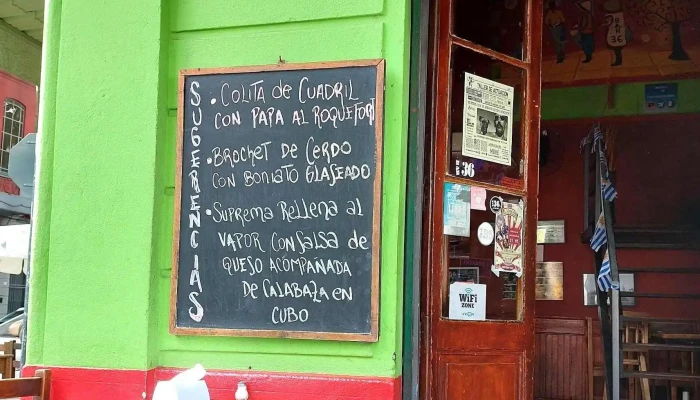 SUGERENCIAS
• COLITA DE CUADRIL
CON PAPA AL ROQUEFORT
• BROCHET DE CERDO
CON BONIATO GLASEADO
• SUPREMA RELLENA AL
VAPOR CON SALSA DE
QUESO ACOMPAÑADA
DE CALABAZA EN
CUBO
36
WiFi
ZONE